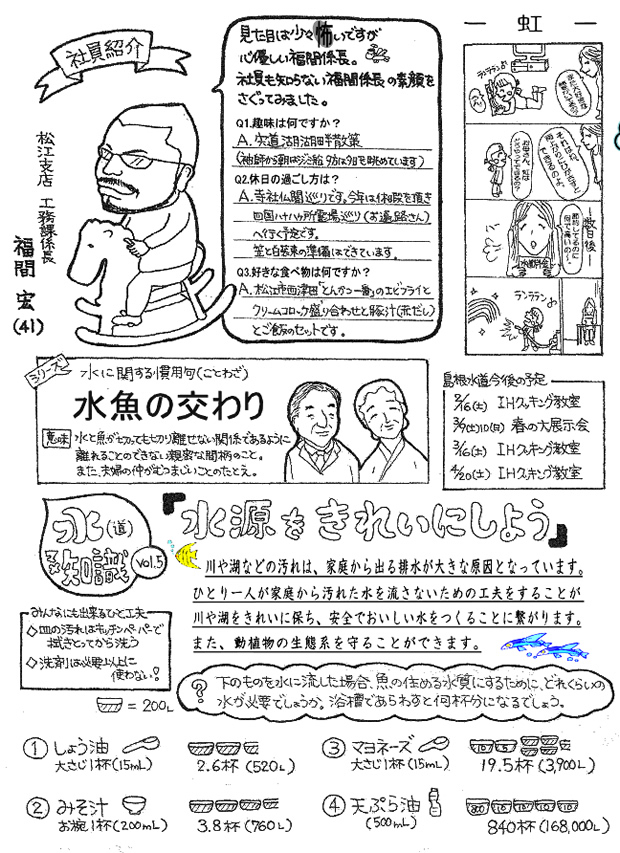 社員紹介
松江支店 工務課係長
福間 宏
(41)
見た目は少々怖いですが
心優しい福間係長。
社員も知らない福間係長の素顔を
さぐってみました。
Q1.趣味は何ですか?
A. 宍道湖湖畔散策
Q2.休日の過ごし方は?
A. 寺社仏閣巡りです。今年は休暇を頂き
四国八十八ヶ所霊場巡り(お遍路さん)
へ行く予定です。
笠と白装束の準備はできています。
Q3.好きな食べ物は何ですか?
A. 松江市西津田「とんかつ一番」のエビフライと
クリームコロッケ盛り合わせと豚汁(赤だし)
とご飯のセットです。
虹
ランラララン♪
数日後
ランラララン♪
シリーズ
水に関する慣用句(ことわざ)
水魚の交わり
意味
水と魚がとっても切り離せない関係であるように
離れることのできない親密な間柄のこと。
また、夫婦の仲がむつまじいことのたとえ。
島根水道今後の予定
2/16(土) IHクッキング教室
3/9(土)10(日) 春の大展示会
3/16(土) IHクッキング教室
4/20(土) IHクッキング教室
水(道)
豆知識
vol.5
『水源をきれいにしよう』
川や湖などの汚れは、家庭から出る排水が大きな原因となっています。
ひとり一人が家庭から汚れた水を流さないための工夫をすることが
川や湖をきれいに保ち、安全でおいしい水をつくることに繋がります。
また、動植物の生態系を守ることができます。
みんなにも出来るひと工夫
◇皿の汚れはキッチンペーパーで
拭きとってから洗う
◇洗剤は必要以上に
使わない!
= 200L
? 下のものを水に流した場合、魚の住める水質にするために、どれくらいの
水が必要でしょうか。浴槽であらわすと何杯分になるでしょう。
① しょう油
大さじ1杯(15mL) 2.6杯(520L)
② みそ汁
お椀1杯(200mL) 3.8杯(760L)
③ マヨネーズ
大さじ1杯(15mL) 19.5杯(3,900L)
④ 天ぷら油
(500mL) 840杯(168,000L)